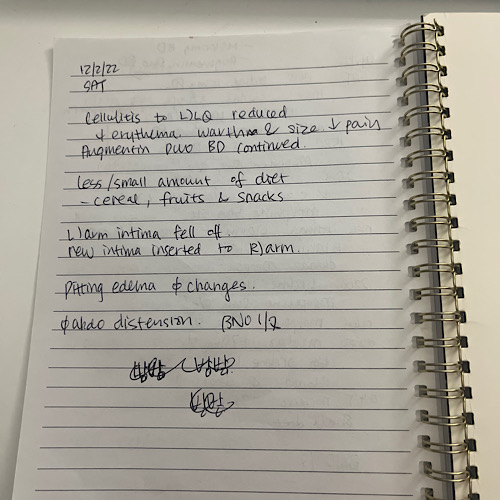 12/2/22
SAT
Cellulitis to L)LQ reduced
↓ erythema, warthma & size ↓ pain
Augmentin DUO BD continued.
less/small amount of diet
- cereal, fruits & snacks
L)arm intima fell off.
new intima inserted to R)arm.
Pitting edema φ changes.
φ abdo distension. BNO 1/7